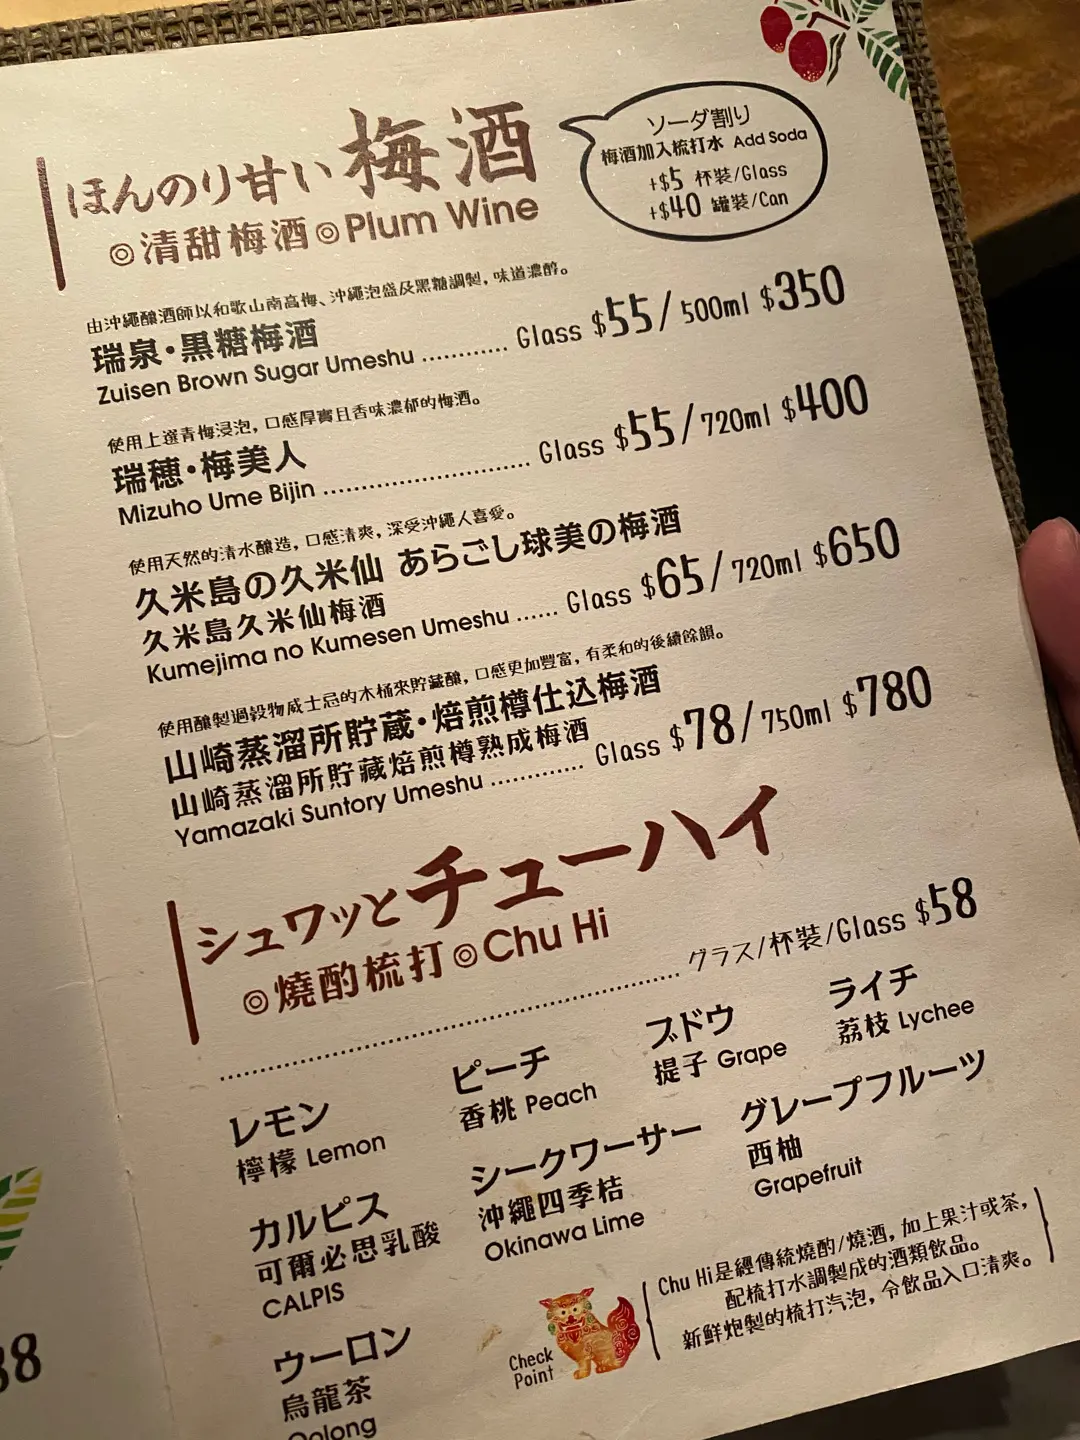 ほんのり甘い梅酒
◎清甜梅酒◎Plum Wine
ソーダ割り
梅酒加入梳打水 Add Soda
+$5 杯裝/Glass
+$40 罐裝/Can
由沖繩釀酒師以和歌山南高梅、沖繩泡盛及黑糖調製，味道濃醇。
瑞泉・黒糖梅酒
Zuisen Brown Sugar Umeshu ............ Glass $55/500ml $350
使用上選青梅浸泡，口感厚實且香味濃郁的梅酒。
瑞穂・梅美人
Mizuho Ume Bijin ............................. Glass $55/720ml $400
使用天然的清水釀造，口感清爽，深受沖繩人喜愛。
久米島の久米仙 あらごし球美の梅酒
久米島久米仙梅酒
Kumejima no Kumesen Umeshu ...... Glass $65/720ml $650
使用釀製過穀物威士忌的木桶來貯藏釀，口感更加豐富，有柔和的後續餘韻。
山崎蒸溜所貯蔵・焙煎樽仕込梅酒
山崎蒸溜所貯藏焙煎樽熟成梅酒
Yamazaki Suntory Umeshu ............. Glass $78/750ml $780
シュワッとチューハイ
◎燒酌梳打◎Chu Hi
グラス/杯裝/Glass $58
レモン
檸檬 Lemon
ピーチ
香桃 Peach
ブドウ
提子 Grape
ライチ
荔枝 Lychee
カルピス
可爾必思乳酸
CALPIS
シークワーサー
沖繩四季桔
Okinawa Lime
グレープフルーツ
西柚
Grapefruit
ウーロン
烏龍茶
Oolong
Check
Point
Chu Hi是經傳統燒酌/燒酒，加上果汁或茶，
配梳打水調製成的酒類飲品。
新鮮炮製的梳打汽泡，令飲品入口清爽。
38